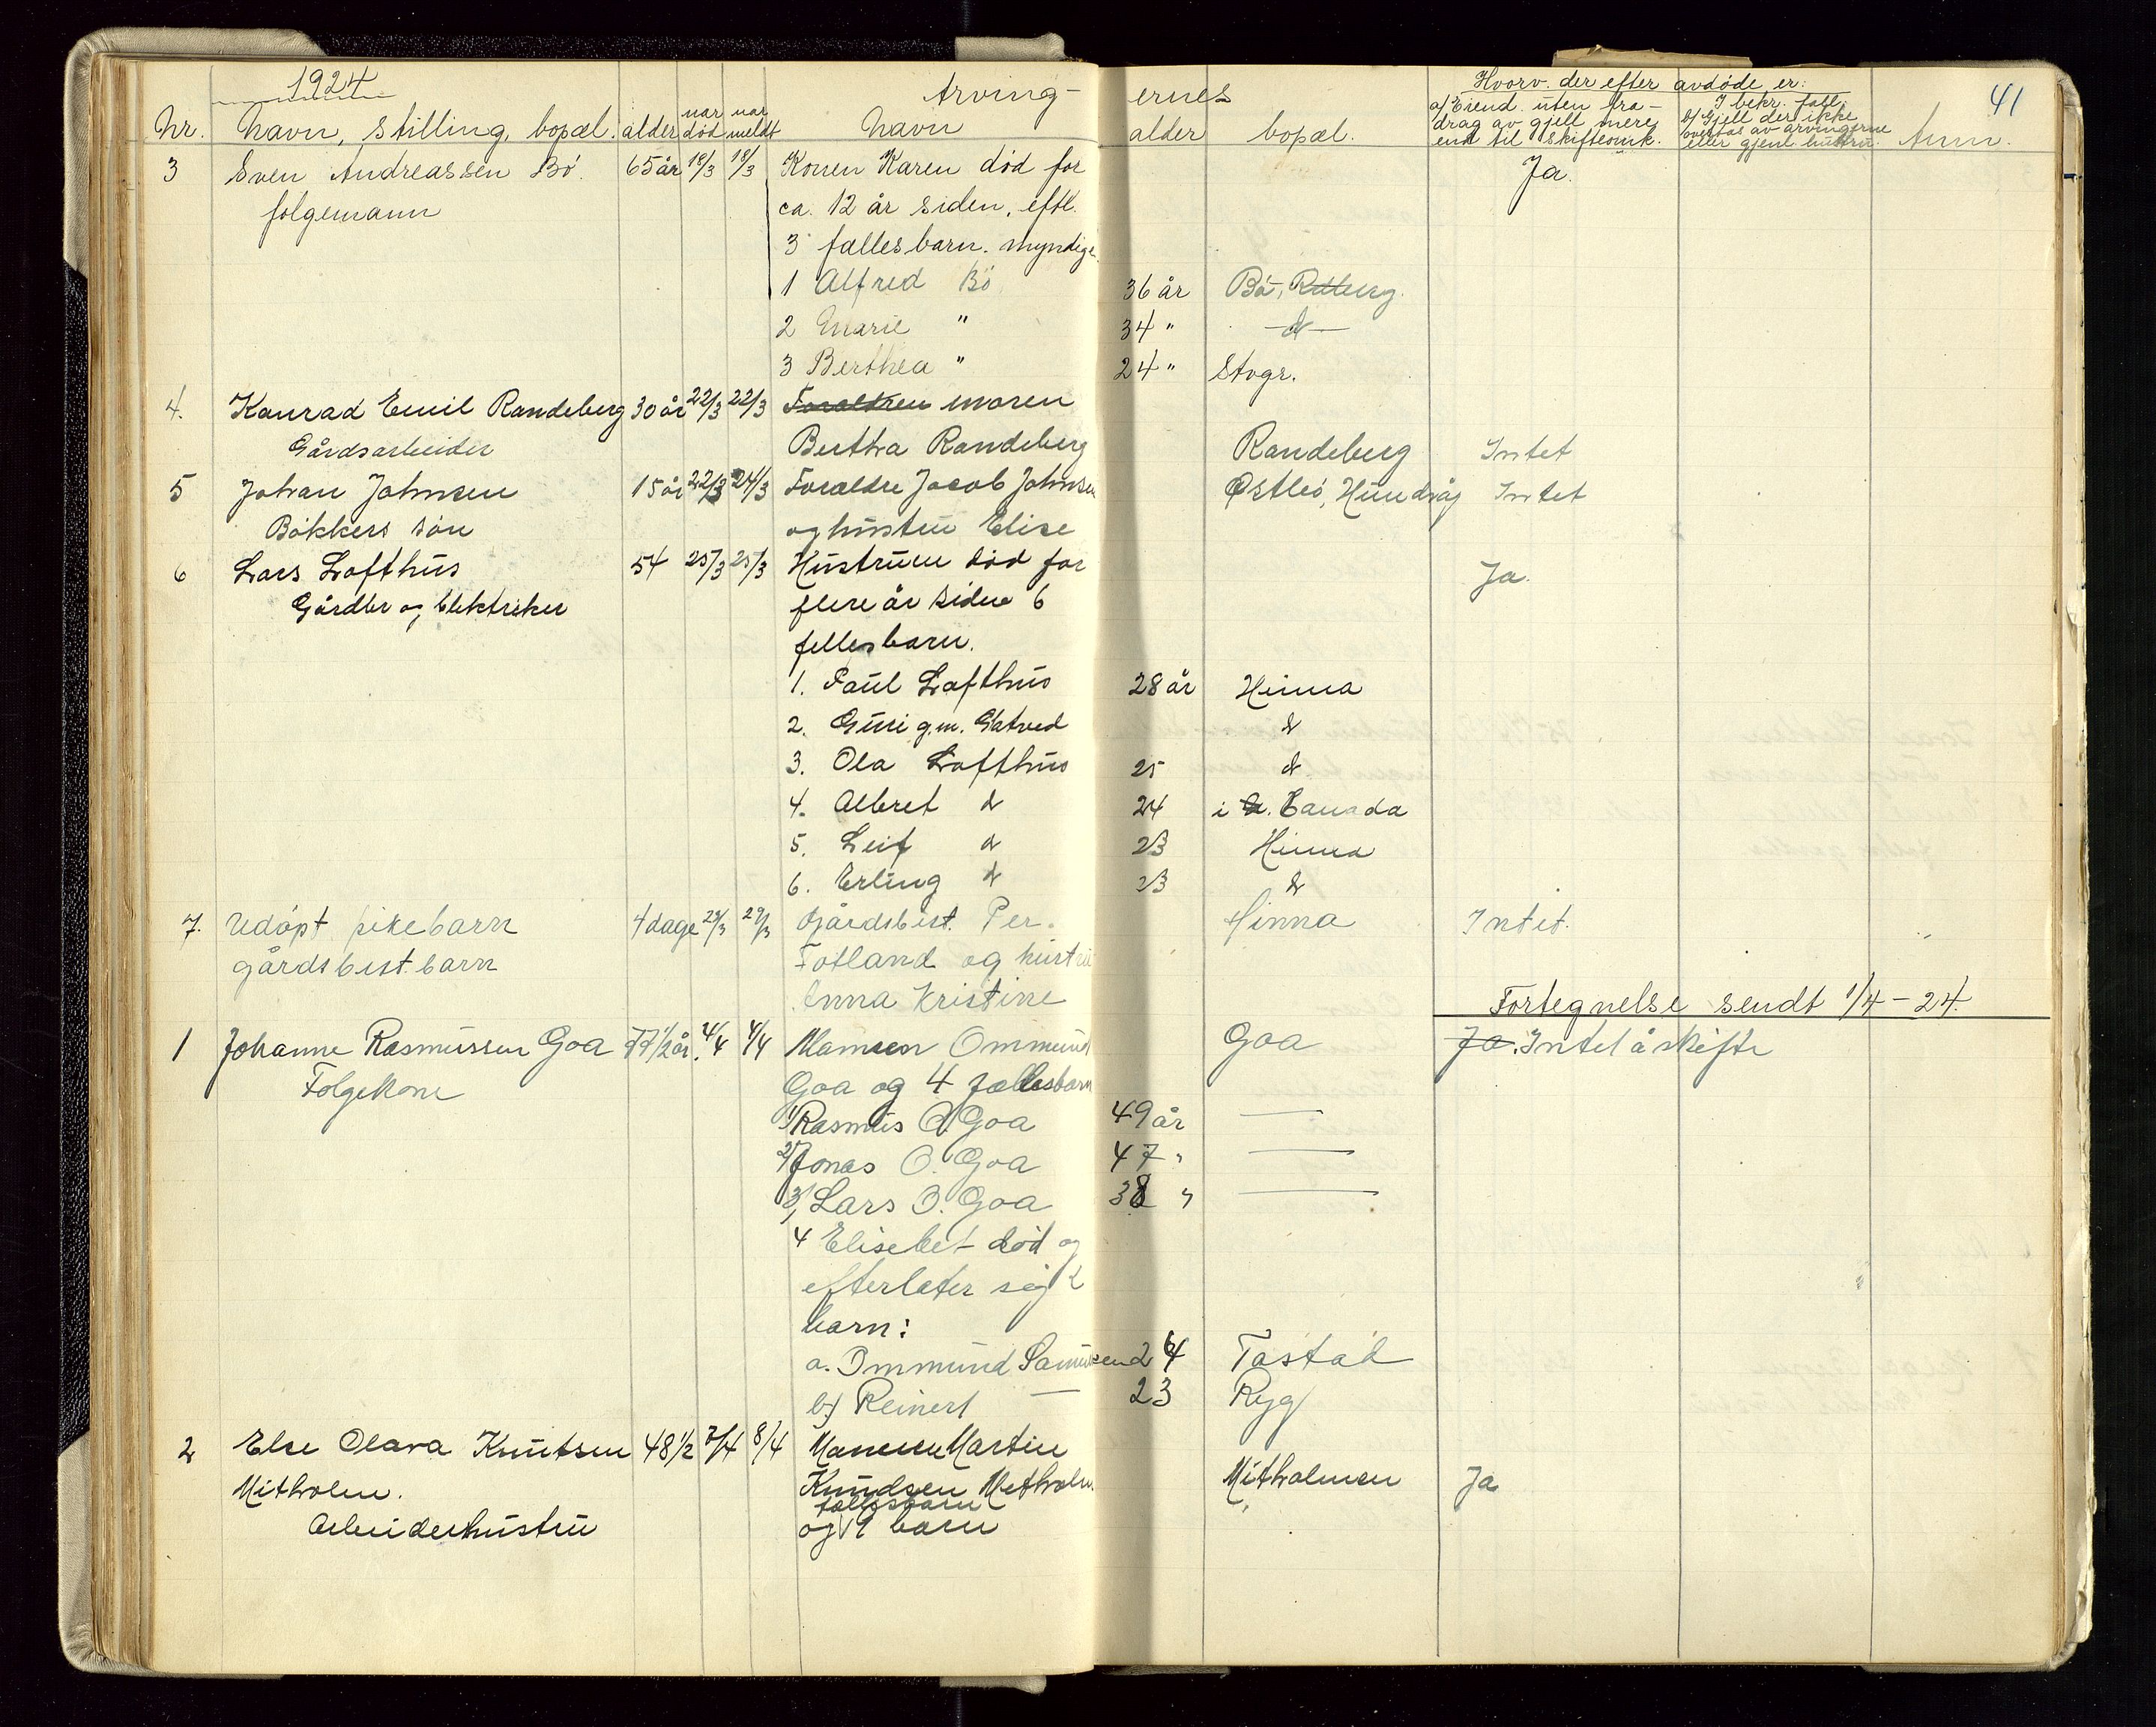 1924
41
Arving- ernes
Hvorv. der efter avdøde er:
Nr. Navn, stilling, bopæl. alder nar død nar meldt Navn alder bopæl. a/ Eiend. uten fra- drag av gjeld mere end til skifteomk. I bekr. fall b/ Gjeld der ikke overtas av arvingerne eller gjenl. hustru. Anm.
3 Sven Andreassen Bö. 65 år 18/3 18/3 Konen Karen död for Ja.
folgemann ca. 12 år siden, eftl.
3 fællesbarn. myndige.
1 Alfred Bö 36 år Bö, Rdberg.
2 Marie " 34 " -d-
3 Berthea " 24 " Stvgr.
4. Konrad Emil Randeberg 30 år 22/3 22/3 Foraldren moren
Gårdsarbeider Bertha Randeberg Randeberg Intet
5 Johan Johnsen 15 år 22/3 24/3 Foraldre Jacob Johnsen Østbö, Hundvåg Intet
Bökkers sön og hustru Elise
6 Lars Lofthus 54 25/3 25/3 Hustruen död for Ja.
Gårdbr og Elektriker flere år siden 6
fellesbarn.
1. Paul Lofthus 28 år Hinna
2. Guri g.m. Gatved d
3. Ola Lofthus 25 d.
4. Albret d 24 i Canada
5. Leif d 23 Hinna
6. Erling d 23 d
7. Udöpt pikebarn 4 dage 29/3 29/3 Gjårdsbest. Per. Hinna Intet.
gårdsbest. barn Fotland og hustru
Anna Kristine
Fortegnelse sendt 1/4 - 24.
1 Johanne Rasmussen Goa 77 1/2 år. 4/4 4/4 Mannen Ommund Goa Ja. Intet å skifte
Folgekone Goa og 4 fællesbarn
1/ Rasmus O. Goa 49 år —
2/ Jonas O. Goa 47 " —
3/ Lars O. Goa 38 " —
4 Elisebet död og
efterlater sig 2
barn:
a. Ommund Samuelsen 24 Tastad
b) Reinert — 23 Ryg
2 Else Olava Knutsen 48 1/2 7/4 8/4 Mannen Martin
Mitholm. Knudsen Metholm. Mitholmen Ja
fællesbarn
Arbeiderhustru og 9 barn